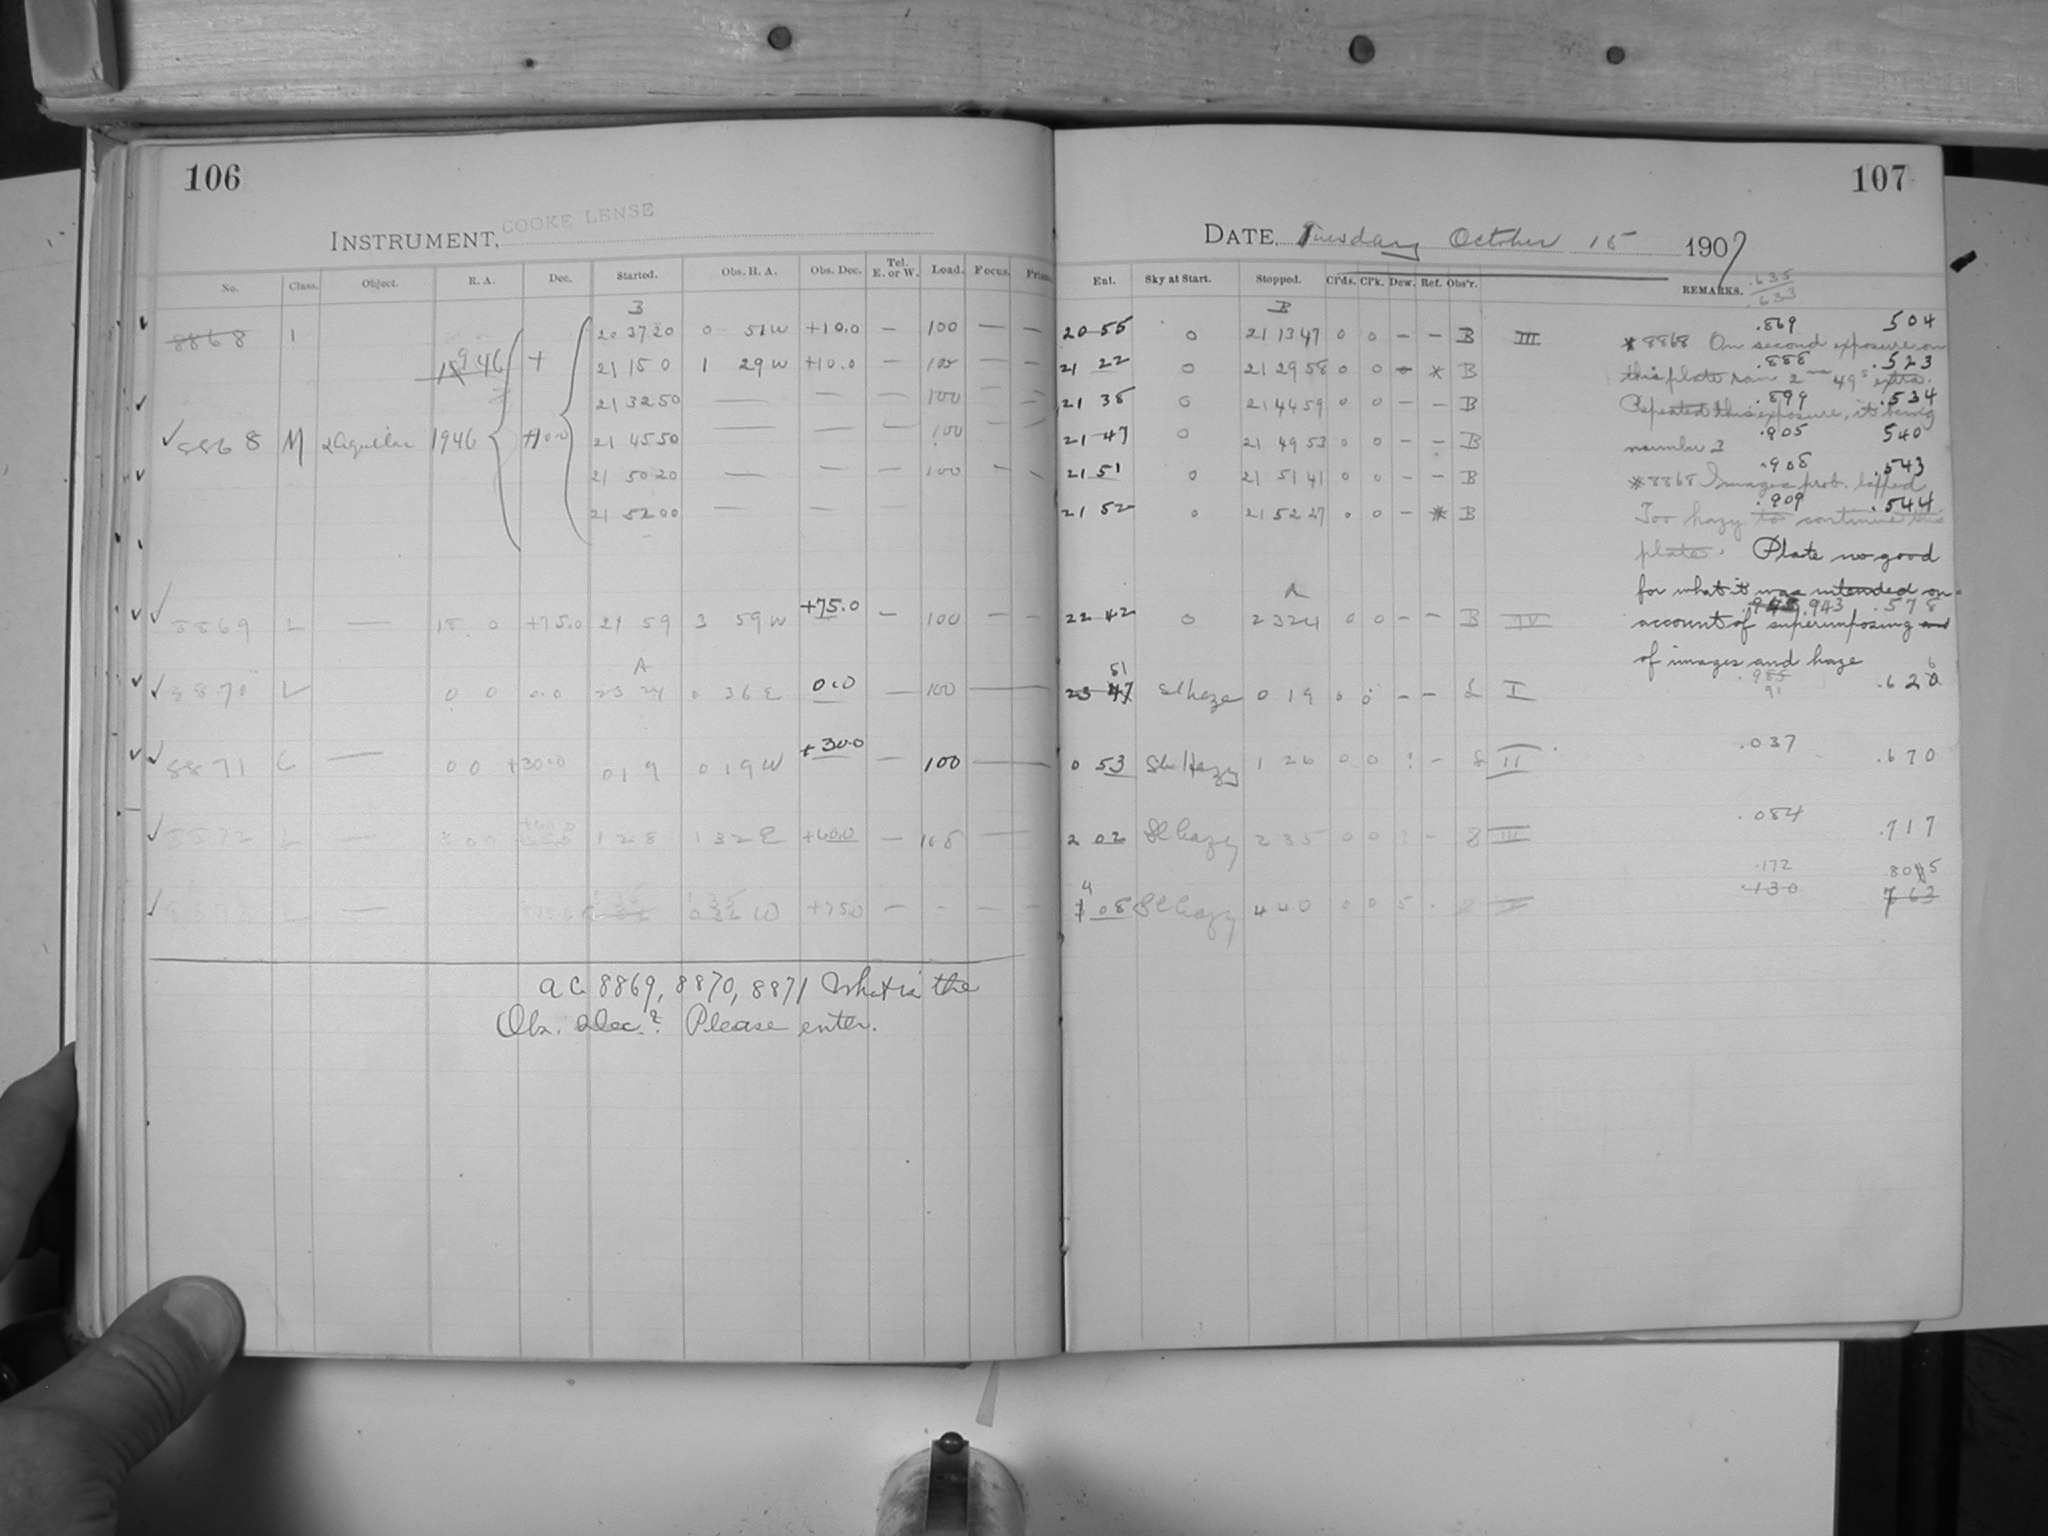 106
INSTRUMENT, COOKE LENSE
No. Class. Object. R. A. Dec. Started. Obs. H. A. Obs. Dec. Tel. E. or W. Load. Focus.
B
8868 1 20 37 20 0 51 W +10.0 — 100 — —
1946 + 21 15 0 1 29 W +10.0 — 100 — —
21 32 50 — — — 100 — —
8868 M 1946 +10.0 21 45 50 — — — 100 — —
21 50 20 — — — 100 — —
21 52 00 — — —
8869 L — 18 0 +75.0 21 59 3 59 W +75.0 — 100 — —
A
8870 L 0 0 0.0 23 24 0 36 E 0.0 — 100 —
8871 — 0 0 +30.0 0 19 0 19 W +30.0 — 100 —
8872 L — 1 28 1 32 E +60.0 — —
— W +75.0 — - — —
A C 8869, 8870, 8871 What is the
Obs. Dec.? Please enter.
107
DATE, Tuesday October 15 1907
Ent. Sky at Start. Stopped. Cl'ds. Cl'k. Dew. Ref. Obs'r. REMARKS. .635
.633
B
20 55 0 21 13 47 0 0 — — B III .869 504
*8868 On second exposure on
21 22 0 21 29 58 0 0 — * B .888 .523
this plate ran 2 49 s extra.
21 38 0 21 44 59 0 0 — — B .899 .534
Repeated this exposure, it being
21 47 0 21 49 53 0 0 — — B .905 540
number 3
21 51 0 21 51 41 0 0 — — B .908 .543
*8868 Images prob.
21 52 0 21 52 27 0 0 — * B .909 .544
Too hazy to continue this
plate. Plate no good
for what it was intended on
A
22 42 0 23 24 0 0 — — B IV .943 .578
account of superimposing and
of images and haze
51
23 47 Sl haze 0 19 0 0 — — I .985 .620
91 6
0 53 Sl. Hazy 1 26 0 0 ? — II .037 .670
2 02 Sl hazy 2 35 0 0 ? - III .084 .717
4 08 Sl hazy 4 40 0 0 .172 805
130 763